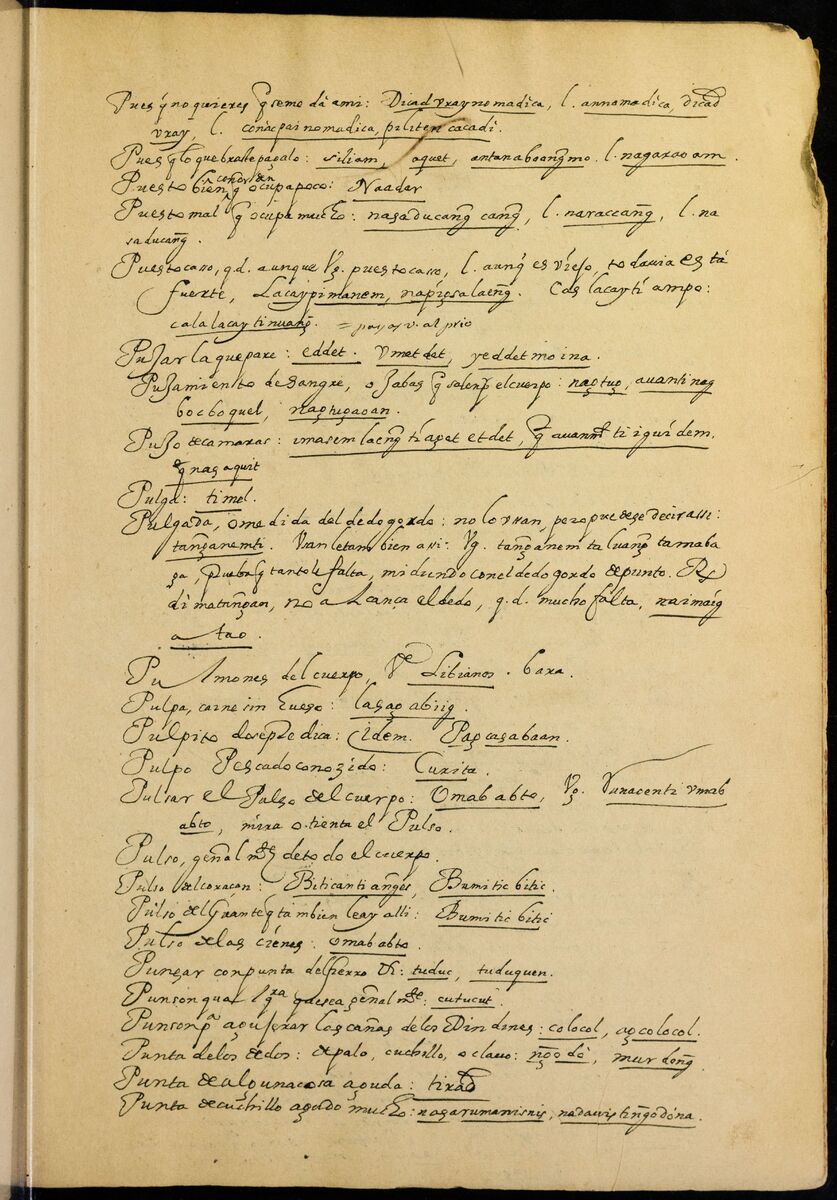 Pues q̃ no quieres q̃ se me dà ami: Dicad vray nomadica, l. annomadica, dicad
vray, l. conacpainomadica, piliten cacadi.
Pues q̃ lo quebraste pagalo: siliam, aguet, antanaboang̃mo. l. nagaraoam.
Puesto bien q̃ ocupa poco: Naadar
Puesto mal q̃ ocupa mucho: nasaducang̃ cang̃, l. naraccang̃, l. na
saducang̃.
Puesto caso, q.d. aunque Vg. puesto caso, l. aunq̃ es viejo, todavia està
fuerte, Lacaypimanem, napigsalaeng̃. Cas lacayti ampo:
calalacaytinuang̃.
Pujar la que pare: eddet. Vmetdet, yeddetmoina.
Pujamiento de sangre, o habas q̃ salen p̃ el cuerpo: nagtug, auanti nag
bocboquel, nagtugaoan.
Pujo de camaras: vmasemlaeng̃ tiaget etdet, q̃ auanm̃ ti iguidem.
q̃ nagaquit
Pulga: timel.
Pulgada, o medida del dedo gordo: no lo vsan, pero puedese decir assi:
tang̃anemti. Vsanle tambien assi: Vg. tang̃anem ta luang̃ tamaba
ga, prueba q̃ tanto le falta, midiendo con el dedo gordo de punto. Rx
di matang̃an, no alcança el dedo, q.d. mucho falta, naimaig
a tao.
Pulmones del cuerpo, Vde Libianos. bara.
Pulpa, carne sin hueso: lasag abiig.
Pulpito do se predica: idem. Pagcasabaan.
Pulpo Pescado conozido: Curita.
Pulsar el Pulso del cuerpo: Omababto, Vg. Vunacenti vmab
abto, mira o tienta el Pulso.
Pulso, genal mte de todo el cuerpo.
Pulso del coraçon: Biticanti anges, Bumitic bitic.
Pulso del Gãnate q̃ tambien le ay alli: Bumitic bitic
Pulso de las cienes: omababto.
Punçar con punta de fierro &: tuduc, tuduquen.
Punson qual qra q̃ sea genal mte: cutucut.
Punson pa agujerar las cañas de los Dindines: colocol, agcolocol.
Punta de los dedos: de palo, cuchillo, o clavo: ng̃odo, murdong̃.
Punta de alguna cosa aguda: tirad
Punta de cuchillo agudo mucho: nagarumanisnis, nadauis ting̃odona.